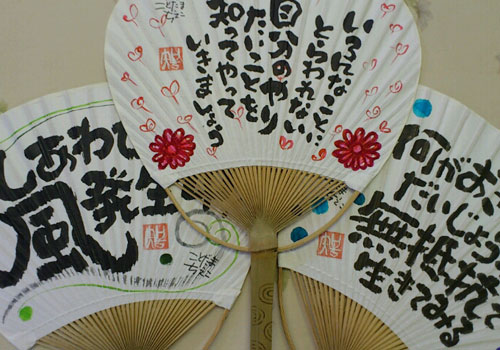 いろんなこと…
とらわれない
自分のやり
たいことを
知ってやって
いきましょう
しあわ
風発生
何がお
だいじょう
無抵抗で
生きてみる